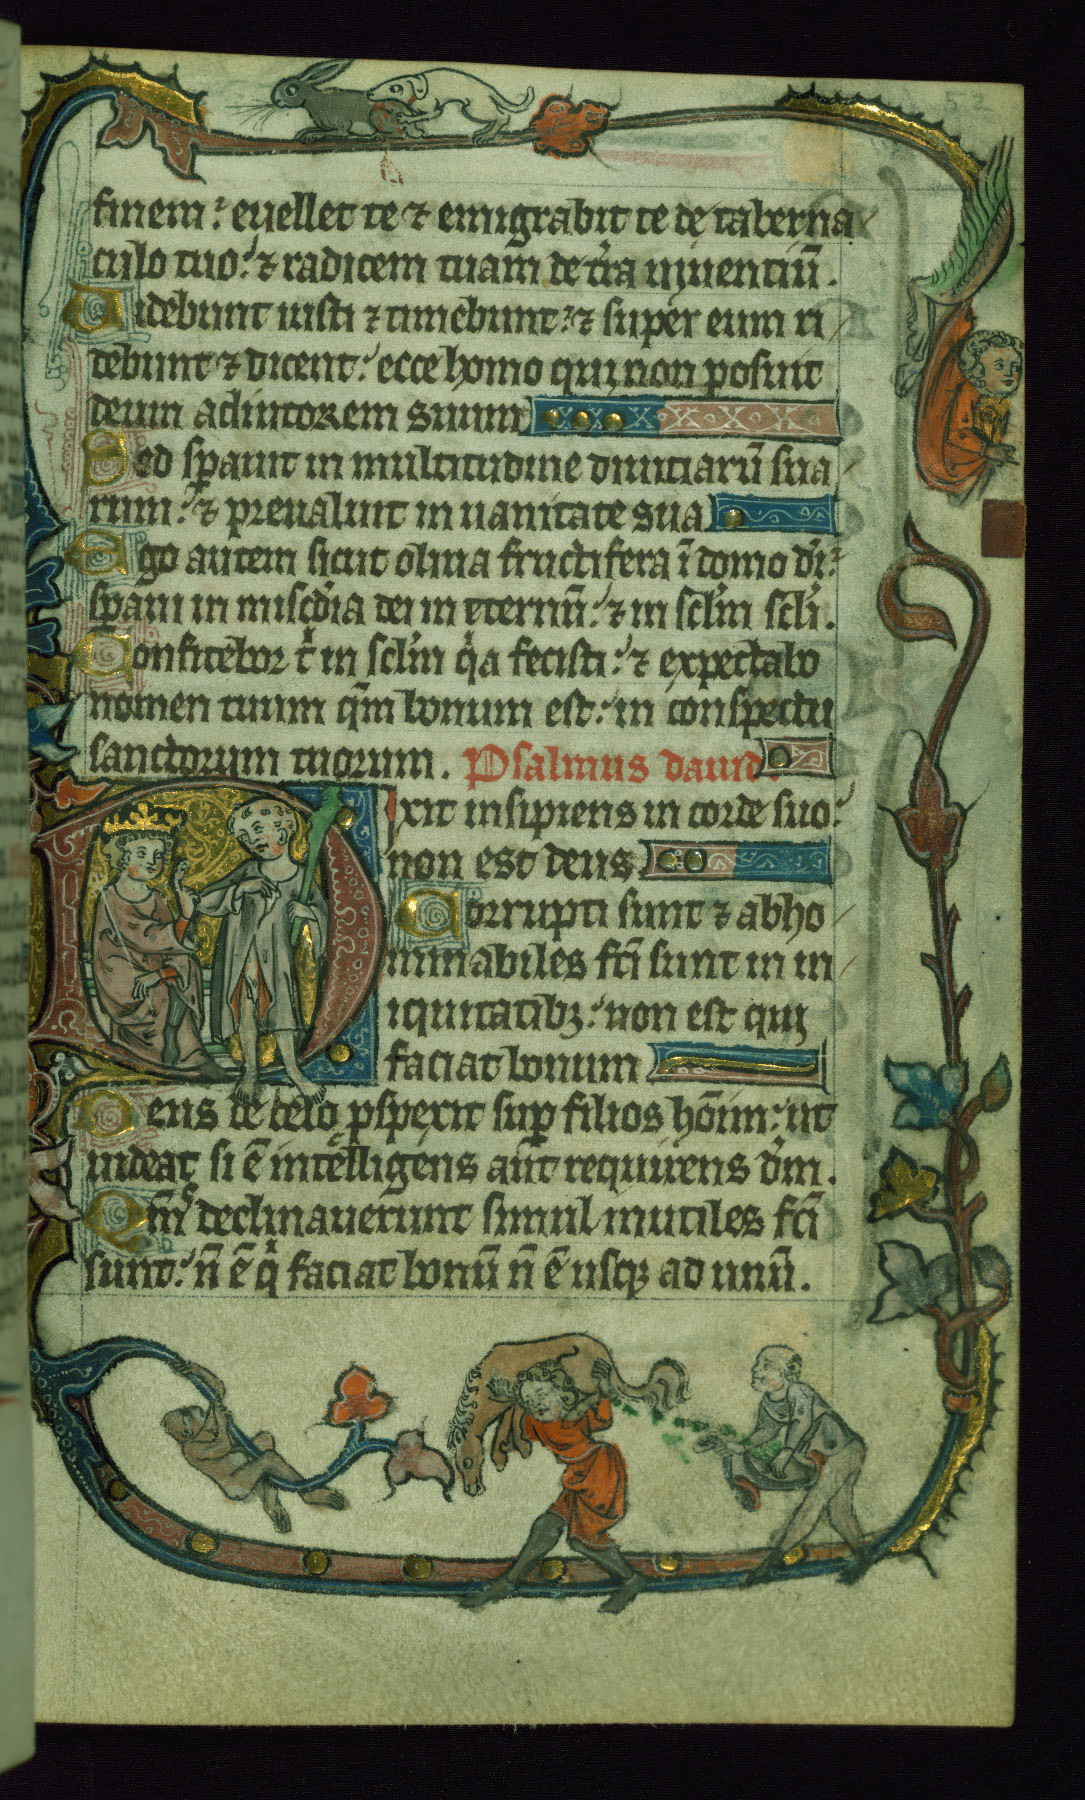 finem: euellet te ⁊ emigrabit te de taberna
culo tuo: ⁊ radicem tuam de t'ra uiuentiū.
Uidebunt iusti ⁊ timebunt: ⁊ super eum ri
debunt ⁊ dicent: ecce homo qui non posuit
deum adiutorem suum
Sed sp̱auit in multitudine diuitiarū sua
rum: ⁊ preualuit in uanitate sua
Ego autem sicut oliua fructifera ī domo dn̄i:
sp̱aui in misc̄dia dei in eternū: ⁊ in scl̄m scl̄i.
Confitebor t̄ in scl̄m q̄a fecisti: ⁊ expectabo
nomen tuum qm̄ bonum est: in conspectu
sanctorum tuorum. Psalmus dauid
Dixit insipiens in corde suo:
non est deus
Corrupti sunt ⁊ abho
minabiles fc̄i sunt in in
iquitatibꝫ: non est qui
faciat bonum
Deus de celo ꝑspexit suꝑ filios hoīm: ut
uideat si ē intelligens aut̄ requirens dm̄.
Om̄s declinauerunt simul inutiles fc̄i
sunt: n̄ ē q̄ faciat bonū n̄ ē usqꝫ ad unū.
52